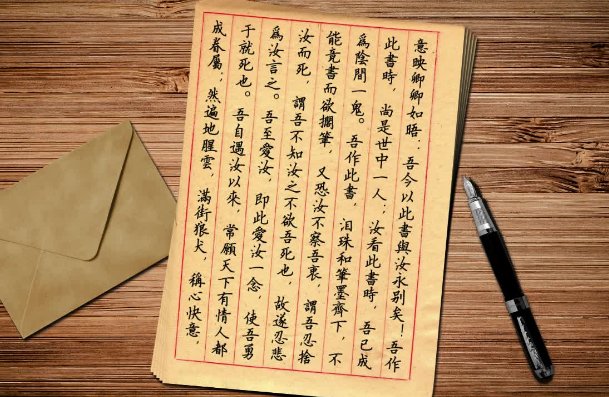 意映卿卿如晤:吾今以此書與汝永別矣!吾作
此書時,尚是世中一人;汝看此書時,吾已成
爲陰間一鬼。吾作此書,泪珠和筆墨齊下,不
能竟書而欲擱筆,又恐汝不察吾衷,謂吾忍捨
汝而死,謂吾不知汝之不欲吾死也,故遂忍悲
爲汝言之。吾至愛汝,即此愛汝一念,使吾勇
于就死也。吾自遇汝以來,常願天下有情人都
成眷屬;然遍地腥雲,滿街狼犬,稱心快意,